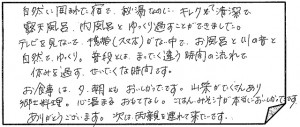 自然に囲まれた宿で、秘湯なのに、キレイで清潔で、
露天風呂、内風呂とゆっくり過すことができました。
テレビを見ないで、携帯(スマホ)がない中で、お風呂と川の音と
自然で、ゆっくり。普段とは、まったく違う時間の流れで
休みを過す、ぜいたくな時間です。
お食事は、夕、朝ともおいしかったです。山菜がたくさんあり
郷土料理。心温まるおもてなし。ごはん、みそ汁が本当においしかったです
ありがとうございます。次は両親を連れて来たいです…